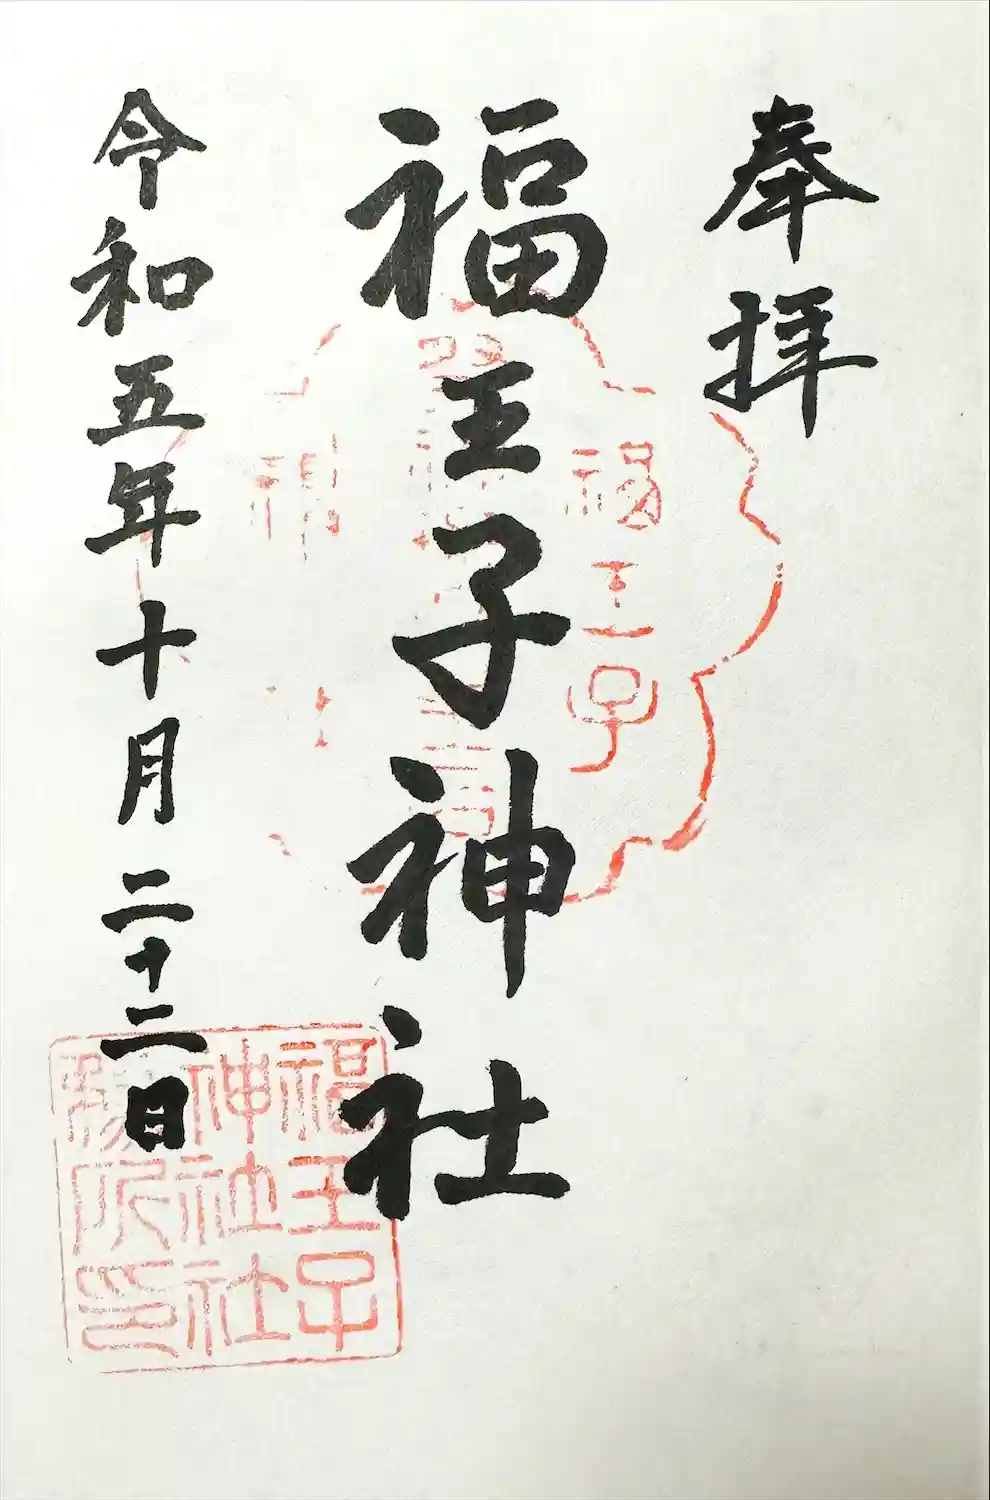 奉拝
福王子神社
令和五年十月二十二日
福王子
福王子
神社社